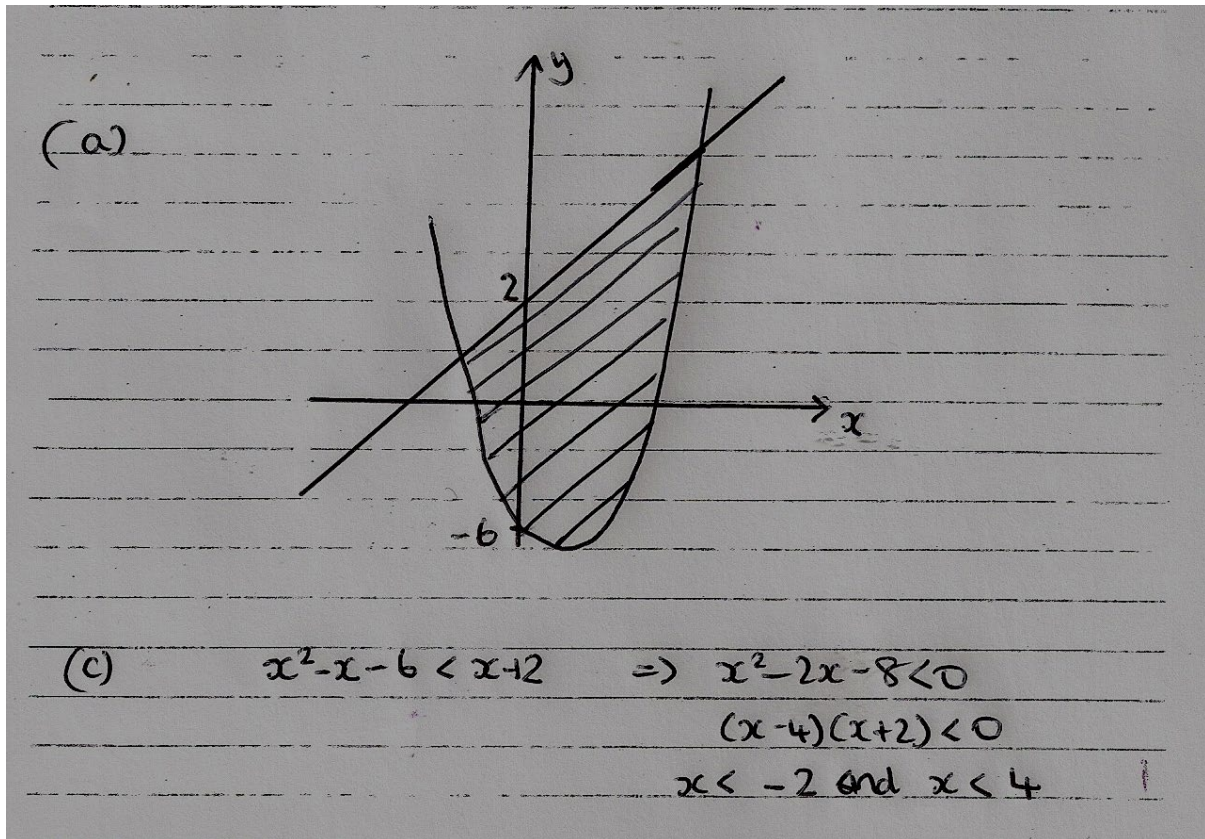 (a)
y
2
x
-6
(c) x²-x-6 < x+2 => x²-2x-8<0
(x-4)(x+2)<0
x< -2 and x<4